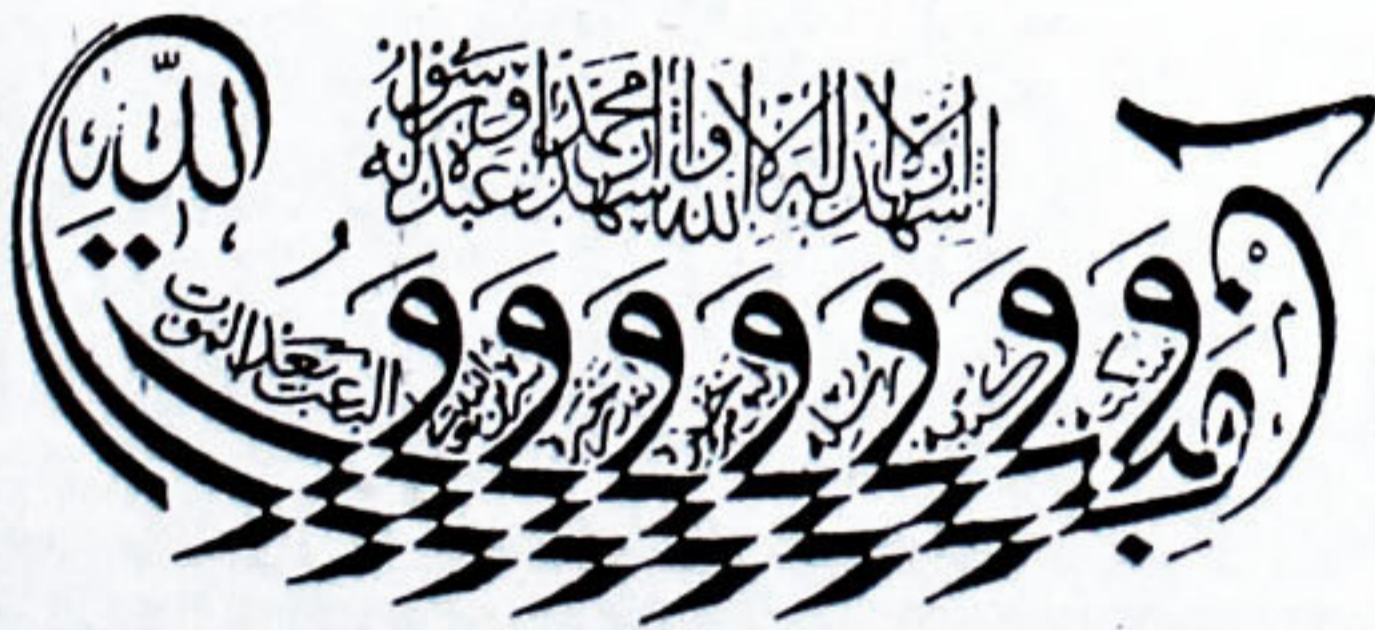 اشهد ان لا اله الا الله واشهد ان محمدا عبده ورسوله
آمنت بالله و ملئكته و كتبه و رسله و اليوم الآخر و و و البعث بعد الموت